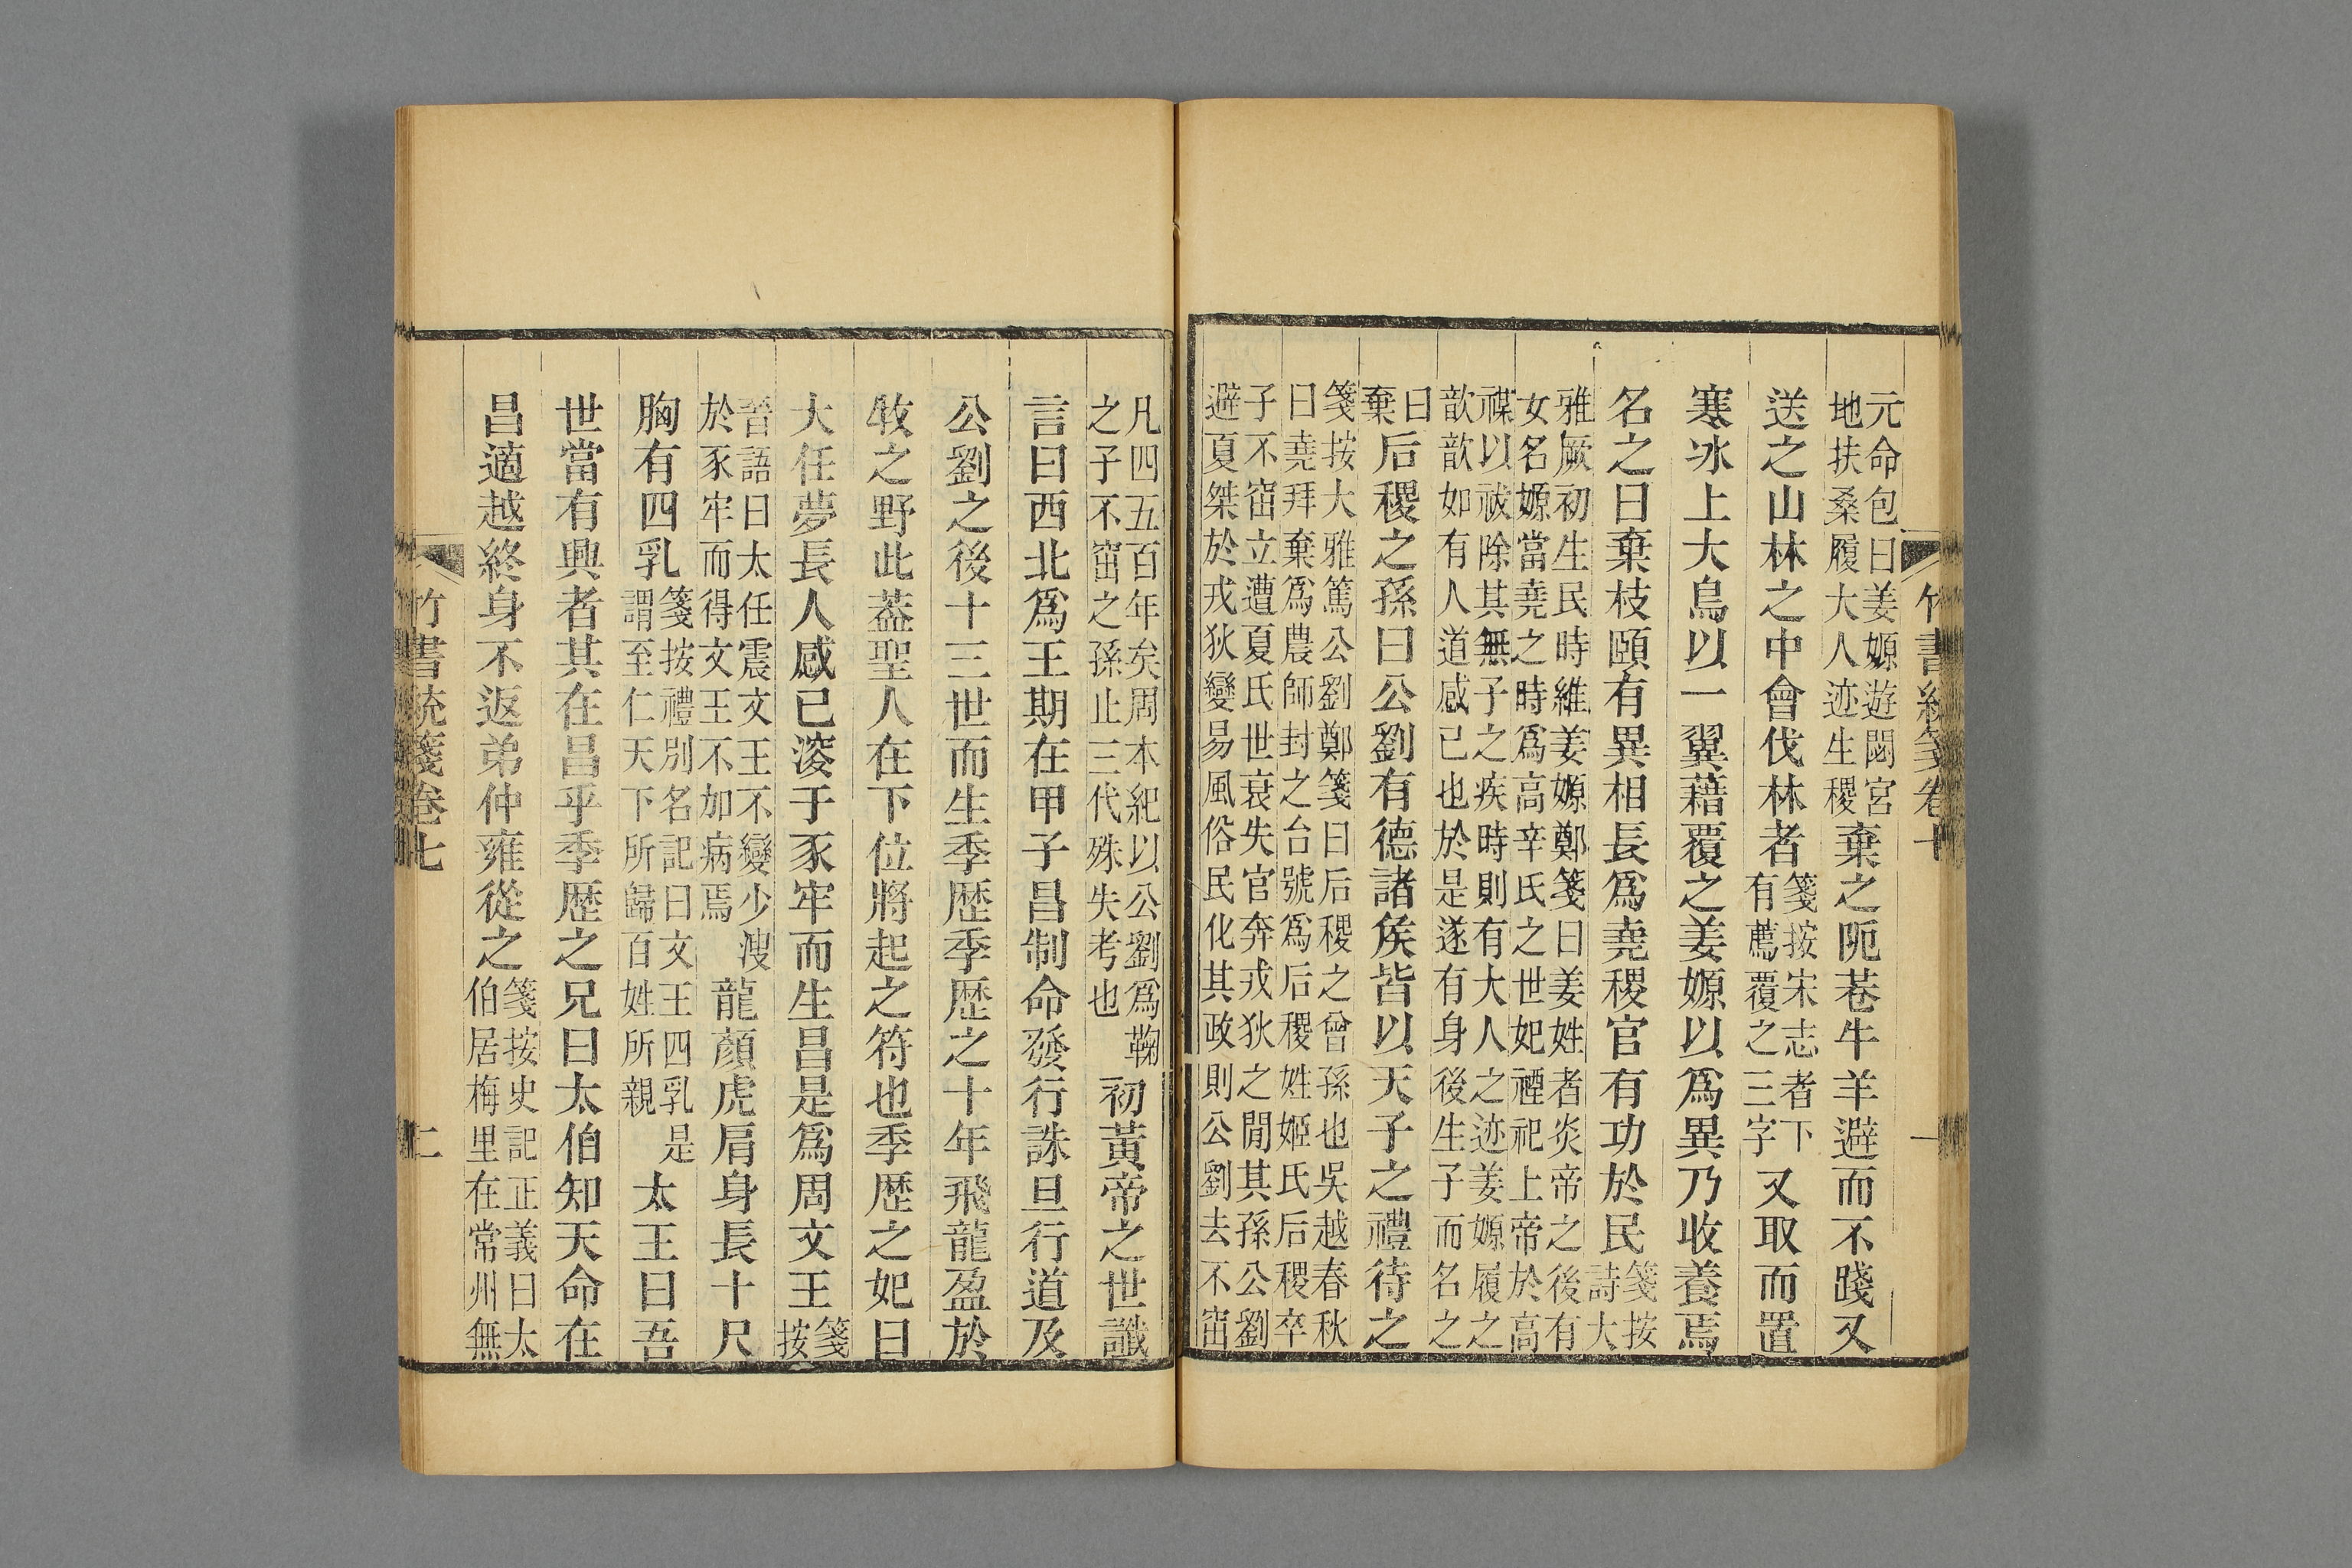 元命包曰姜嫄遊閟宮
地扶桑履大人迹生稷
棄之阨巷牛羊避而不踐又
送之山林之中會伐林者
箋按宋志者下
有薦覆之三字
又取而置
寒冰上大鳥以一翼藉覆之姜嫄以爲異乃收養焉
名之曰棄枝頤有異相長爲堯稷官有功於民
箋按
詩大
雅厥初生民時維姜嫄鄭箋曰姜姓者炎帝之後有
女名嫄當堯之時爲高辛氏之世妃禋祀上帝於高
禖以祓除其無子之疾時則有大人之迹姜嫄履之
歆歆如有人道感己也於是遂有身後生子而名之
曰
棄
后稷之孫曰公劉有德諸矦皆以天子之禮待之
箋按大雅篤公劉鄭箋曰后稷之曾孫也吳越春秋
曰堯拜棄爲農師封之台號爲后稷姓姬氏后稷卒
子不窋立遭夏氏世衰失官奔戎狄之閒其孫公劉
避夏桀於戎狄變易風俗民化其政則公劉去不窋
竹書統箋卷七
凡四五百年矣周本紀以公劉爲鞠
之子不窋之孫止三代殊失考也
初黃帝之世讖
言曰西北爲王期在甲子昌制命發行誅旦行道及
公劉之後十三世而生季歷季歷之十年飛龍盈於
牧之野此葢聖人在下位將起之符也季歷之妃曰
大任夢長人感已溲于豕牢而生昌是爲周文王
箋
按
晉語曰太任震文王不變少溲
於豕牢而得文王不加病焉
龍顏虎肩身長十尺
胸有四乳
箋按禮別名記曰文王四乳是
謂至仁天下所歸百姓所親
太王曰吾
世當有興者其在昌乎季歷之兄曰太伯知天命在
昌適越終身不返弟仲雍從之
箋按史記正義曰太
伯居梅里在常州無
竹書統箋卷七
二